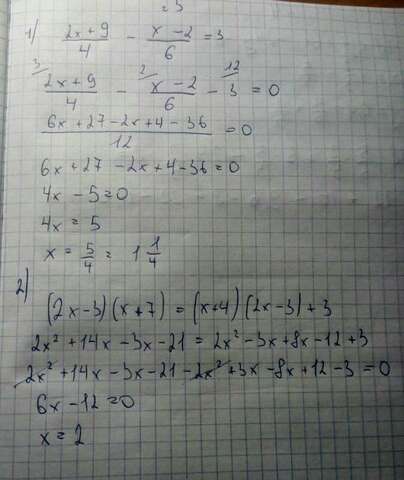 1) (2x + 9)/4 - (x - 2)/6 = 3
3 2 12
(2x + 9)/4 - (x - 2)/6 - 3 = 0
(6x + 27 - 2x + 4 - 36)/12 = 0
6x + 27 - 2x + 4 - 36 = 0
4x - 5 = 0
4x = 5
x = 5/4 = 1 1/4
2)
(2x - 3)(x + 7) = (x + 4)(2x - 3) + 3
2x² + 14x - 3x - 21 = 2x² - 3x + 8x - 12 + 3
2x² + 14x - 3x - 21 - 2x² + 3x - 8x + 12 - 3 = 0
6x - 12 = 0
x = 2